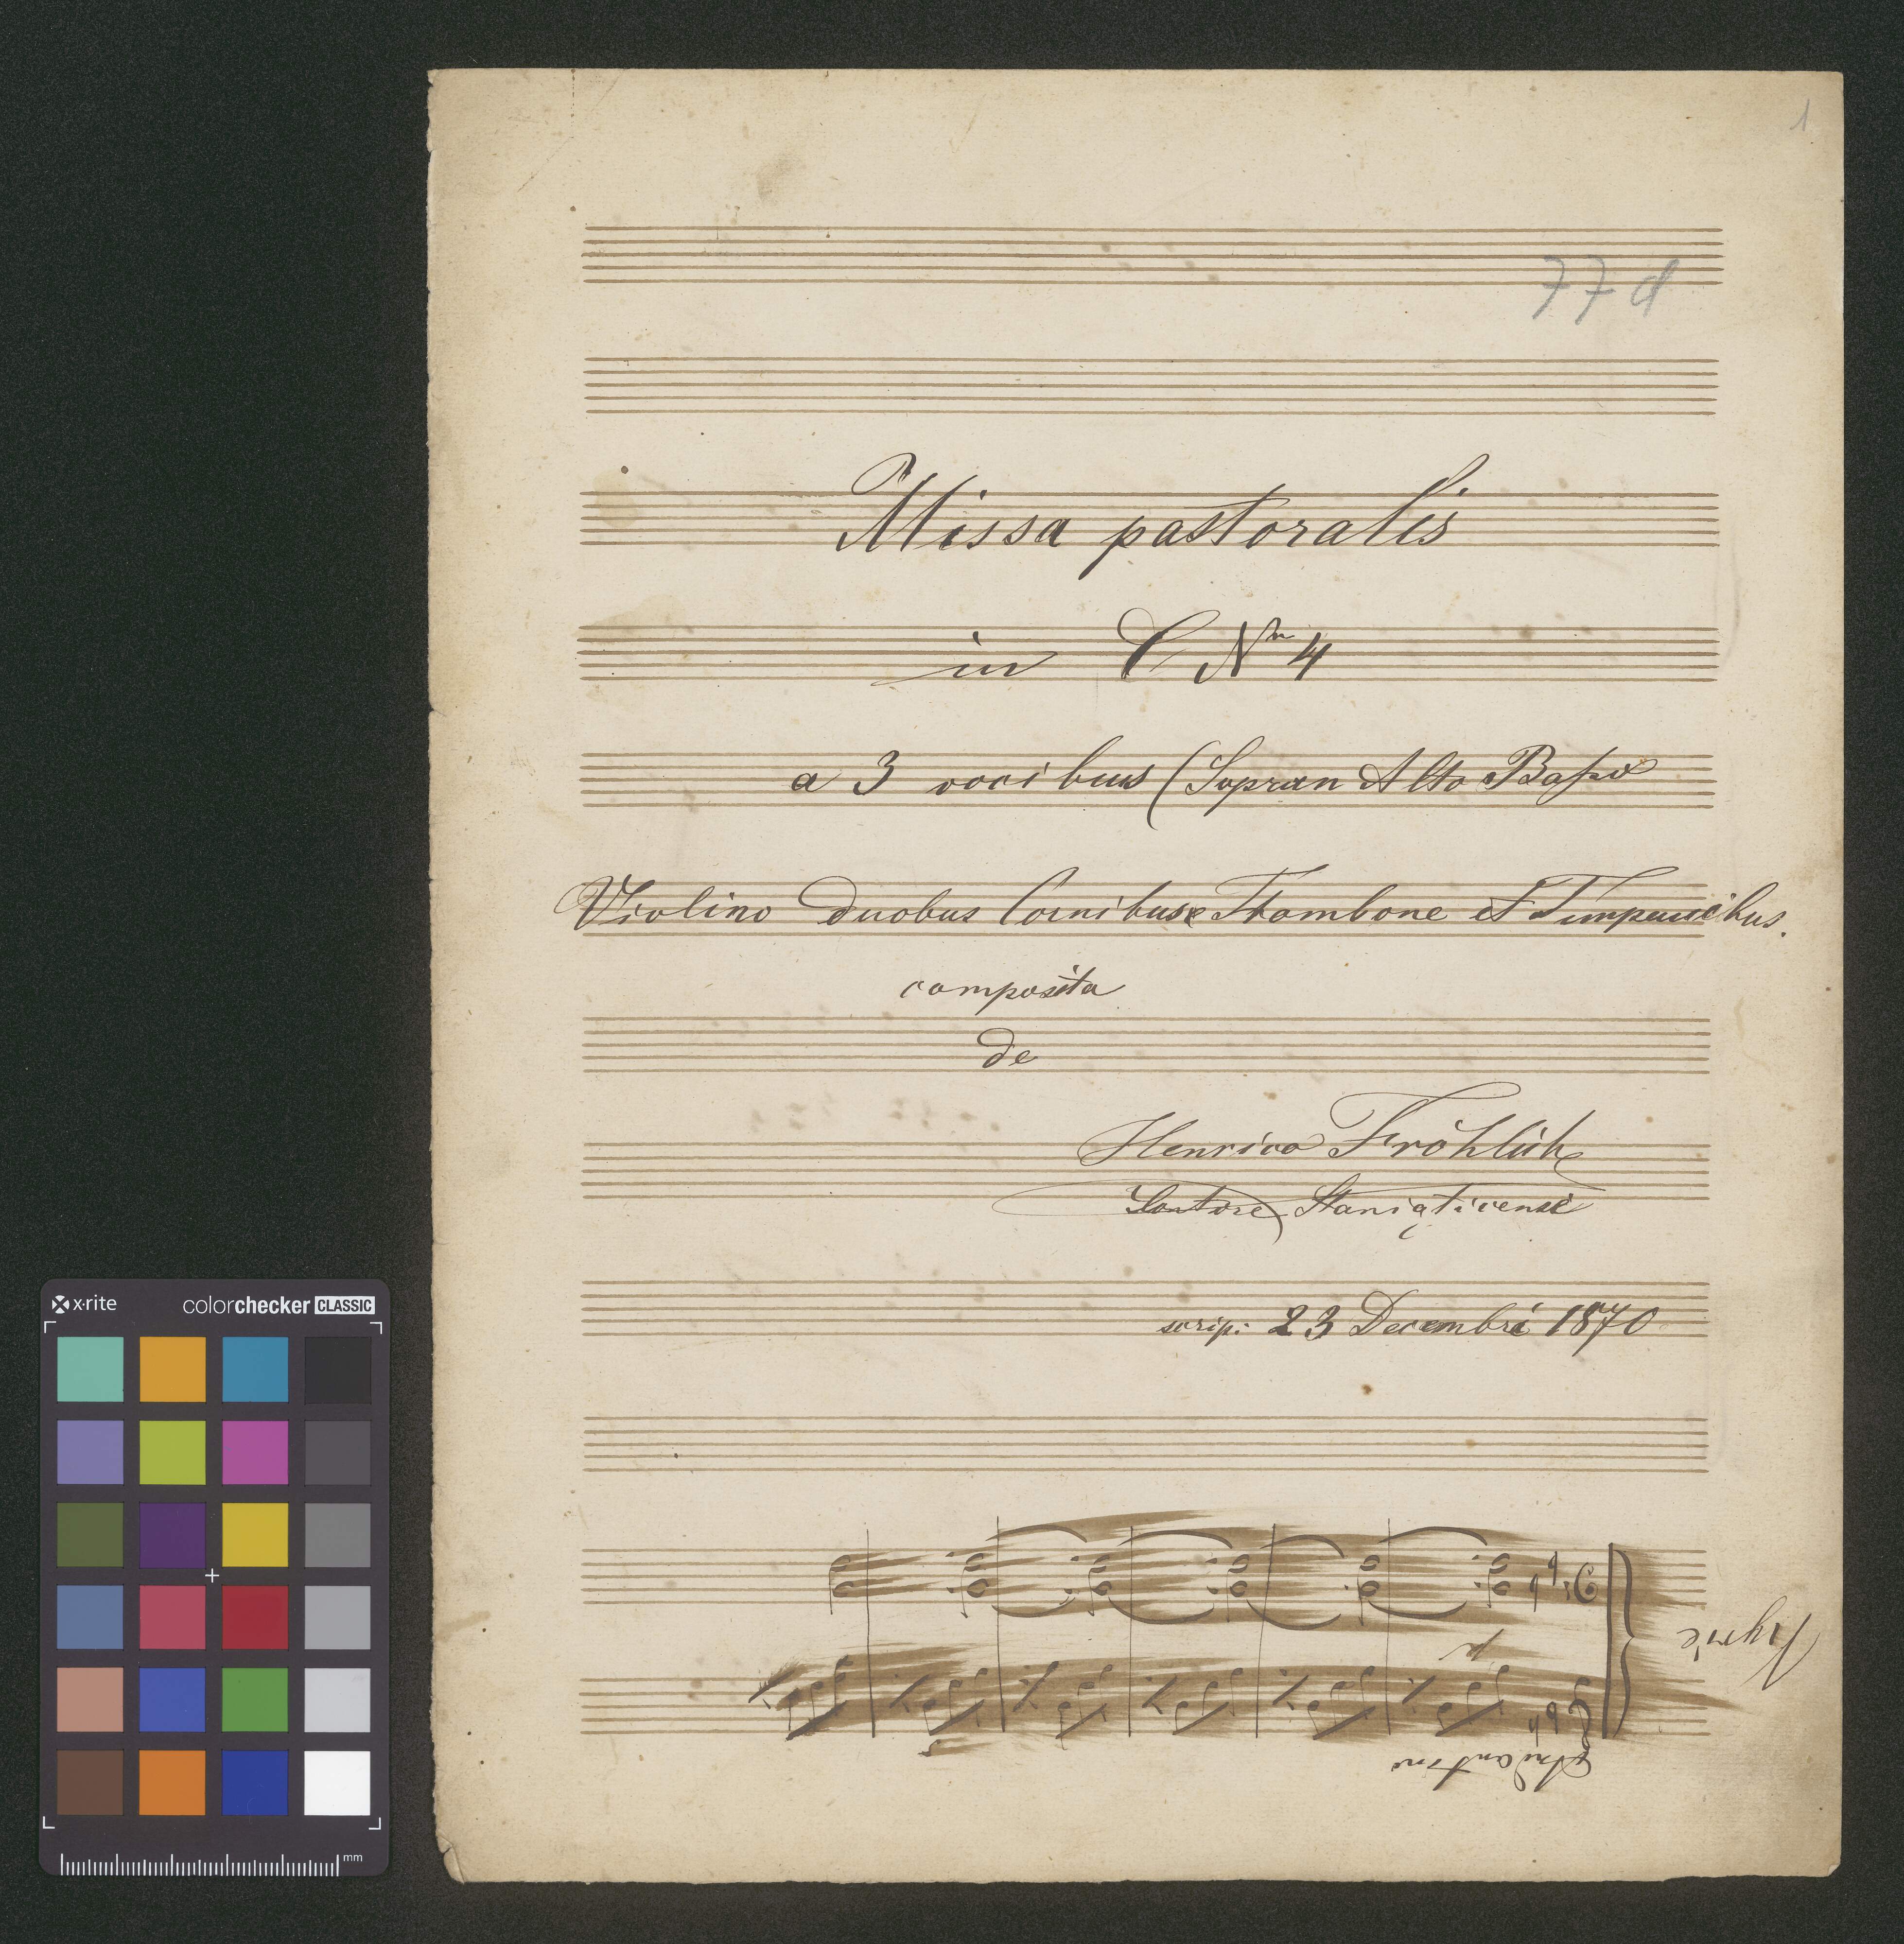 1
77 d
Missa pastoralis
in C Nro 4
a 3 vocibus (Sopran Alto Basso
Violino duobus Cornibus e Trombone et Timpanibus.
composita
de
Henrico Fröhlich
Cantore Staniąticensi
scrip: 23 Decembri 1870
Kyrie
p
Andantino
x-rite
colorchecker CLASSIC
mm